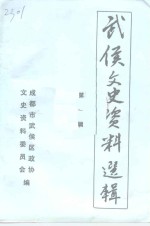 2201
武侯文史资料選輯
第一辑
成都市武侯区政协
文史资料委员会编